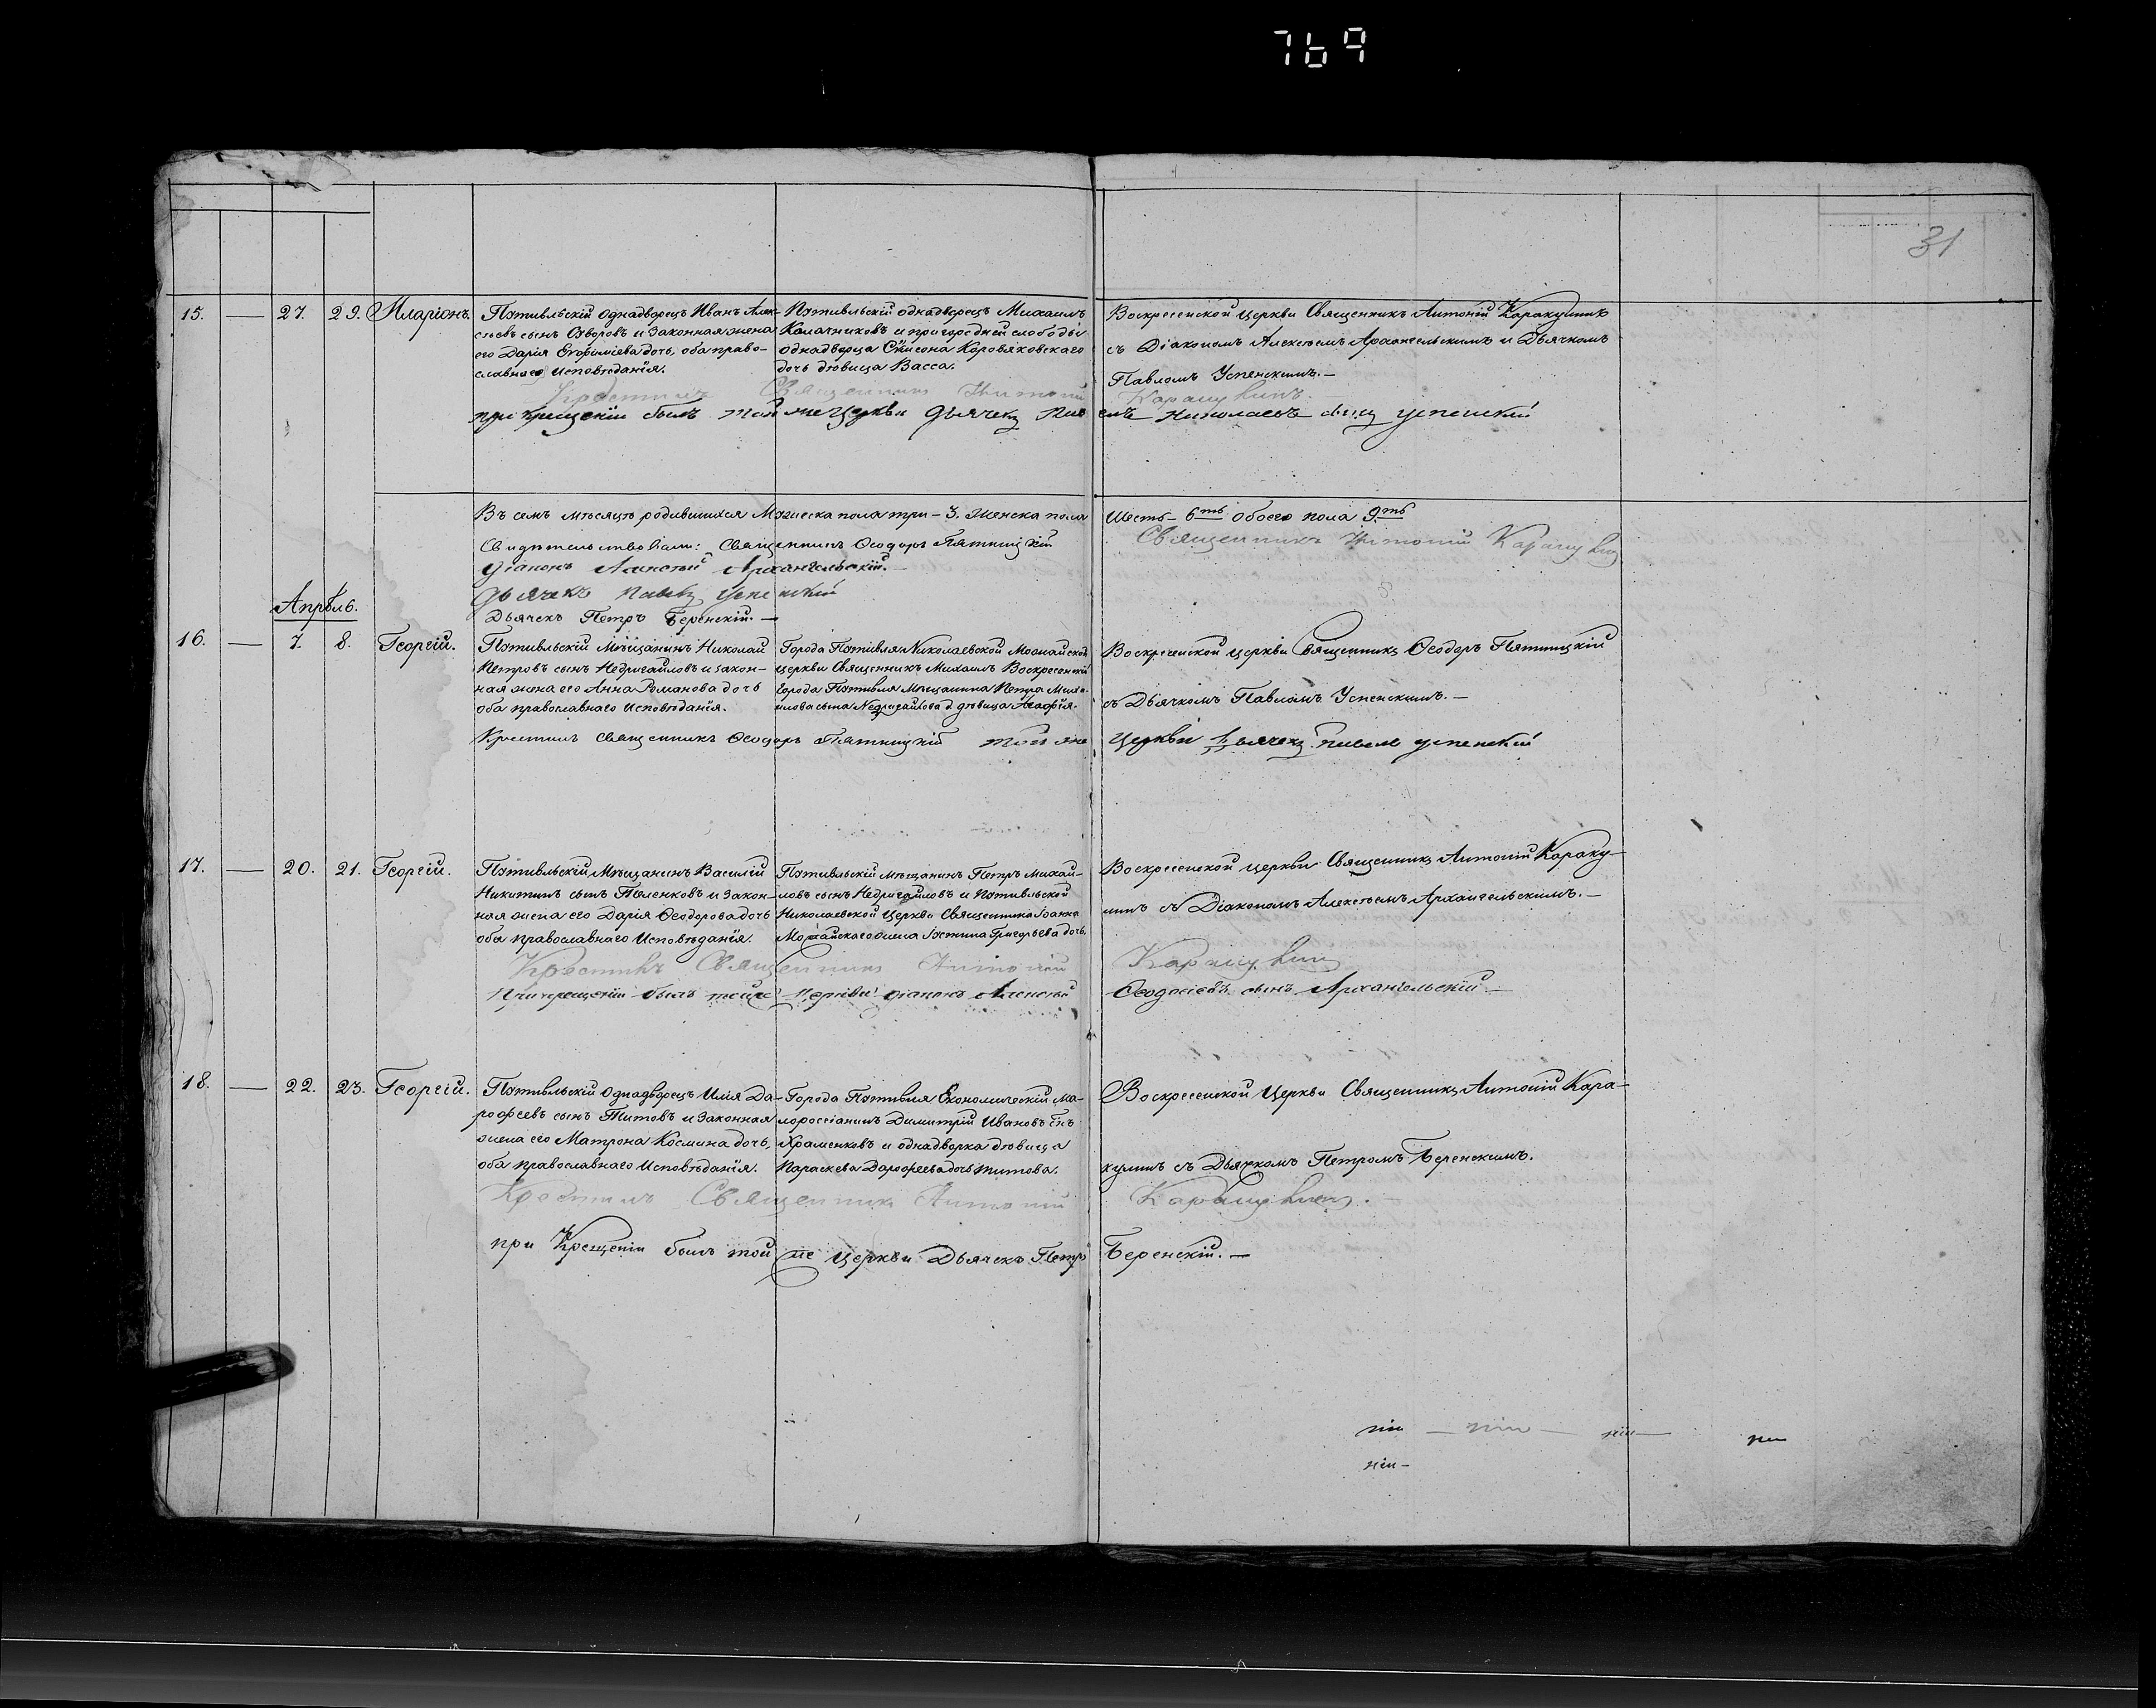 769
31
15. — 27. 29. Иларіонъ.
Пѹтивльскій однадворецъ Иванъ Алек-
сѣевъ сынъ Озеровъ и законная жена
его Дарія Евѳиміева дочь, оба право-
славнаго исповѣданія.
Пѹтивльскій однадворецъ Михаилъ
Калачниковъ и пригородней слободы
однадворца Сѷмеона Коровяковскаго
дочь дѣвица Васса.
Воскресенской церкви Священникъ Антоній Каракулинъ
съ Діакономъ Алексѣемъ Архангельскимъ и Дьячкомъ
Павломъ Успенскимъ. —
Крестилъ Священникъ Антоній Каракулинъ.
при крещеніи былъ той же церкви дьячекъ Николаевъ сынъ успенскій
Въ семъ мѣсяцѣ родившихся Мѹжеска пола три – 3. Женска пола Шесть – 6ть обоего пола 9ть
Свидѣтельствовали: Священникъ Ѳеодоръ Пятницкій
Священникъ Антоній Каракулинъ
діаконъ Алексѣй Архангельскій. —
дьячекъ Павелъ успенскій
Дьячекъ Петръ Беренскій. —
Апрѣль.
16. — 7. 8. Георгій.
Пѹтивльскій Мѣщанинъ Николай
Петровъ сынъ Недригайловъ и закон-
ная жена его Анна Романова дочь
оба православнаго исповѣданія.
Города Пѹтивля Николаевской Можайской
церкви Священникъ Михаилъ Воскресенскій
города Пѹтивля мѣщанина Петра Миха-
илова сына Недригайлова д дѣвица Агафія.
Воскресенской церкви Священникъ Ѳеодоръ Пятницкій
съ Дьячкомъ Павломъ Успенскимъ. —
Крестилъ священникъ Ѳеодоръ Пятницкій той же церкви дьячекъ павелъ успенскій
17. — 20. 21. Георгій.
Пѹтивльскій Мѣщанинъ Василій
Никитинъ сынъ Паленковъ и закон-
ная жена его Дарія Ѳеодорова дочь
оба православнаго исповѣданія.
Пѹтивльскій мѣщанинъ Петръ Михай-
ловъ сынъ Недригайловъ и Пѹтивльской
Николаевской Церкви Священника Іоанна
Можайскаго жена Іѹстина Григорьева дочь.
Воскресенской церкви Священникъ Антоній Караку-
линъ съ Діакономъ Алексѣемъ Архангельскимъ. —
Крестилъ Священникъ Антоній Каракулинъ
При крещеніи былъ тойже Церкви діаконъ Алексѣй Ѳеодосіевъ сынъ Архангельскій —
18. — 22. 23. Георгій.
Пѹтивльскій Однадворецъ Илія До-
рофеевъ сынъ Титовъ и законная
жена его Матрона Космина дочь,
оба православнаго исповѣданія.
Города Пѹтивля Економическій ма-
лороссіанинъ Димитрій Ивановъ снъ
Храменковъ и однадворка дѣвица
Параскева Дорофеева дочь Титова.
Воскресенской Церкви Священникъ Антоній Кара-
кулинъ съ Дьячкомъ Петромъ Беренскимъ.
Крестилъ Священникъ Антоній Каракулинъ. —
при Крещеніи былъ той же церкви Дьячекъ Петръ Беренскій. —